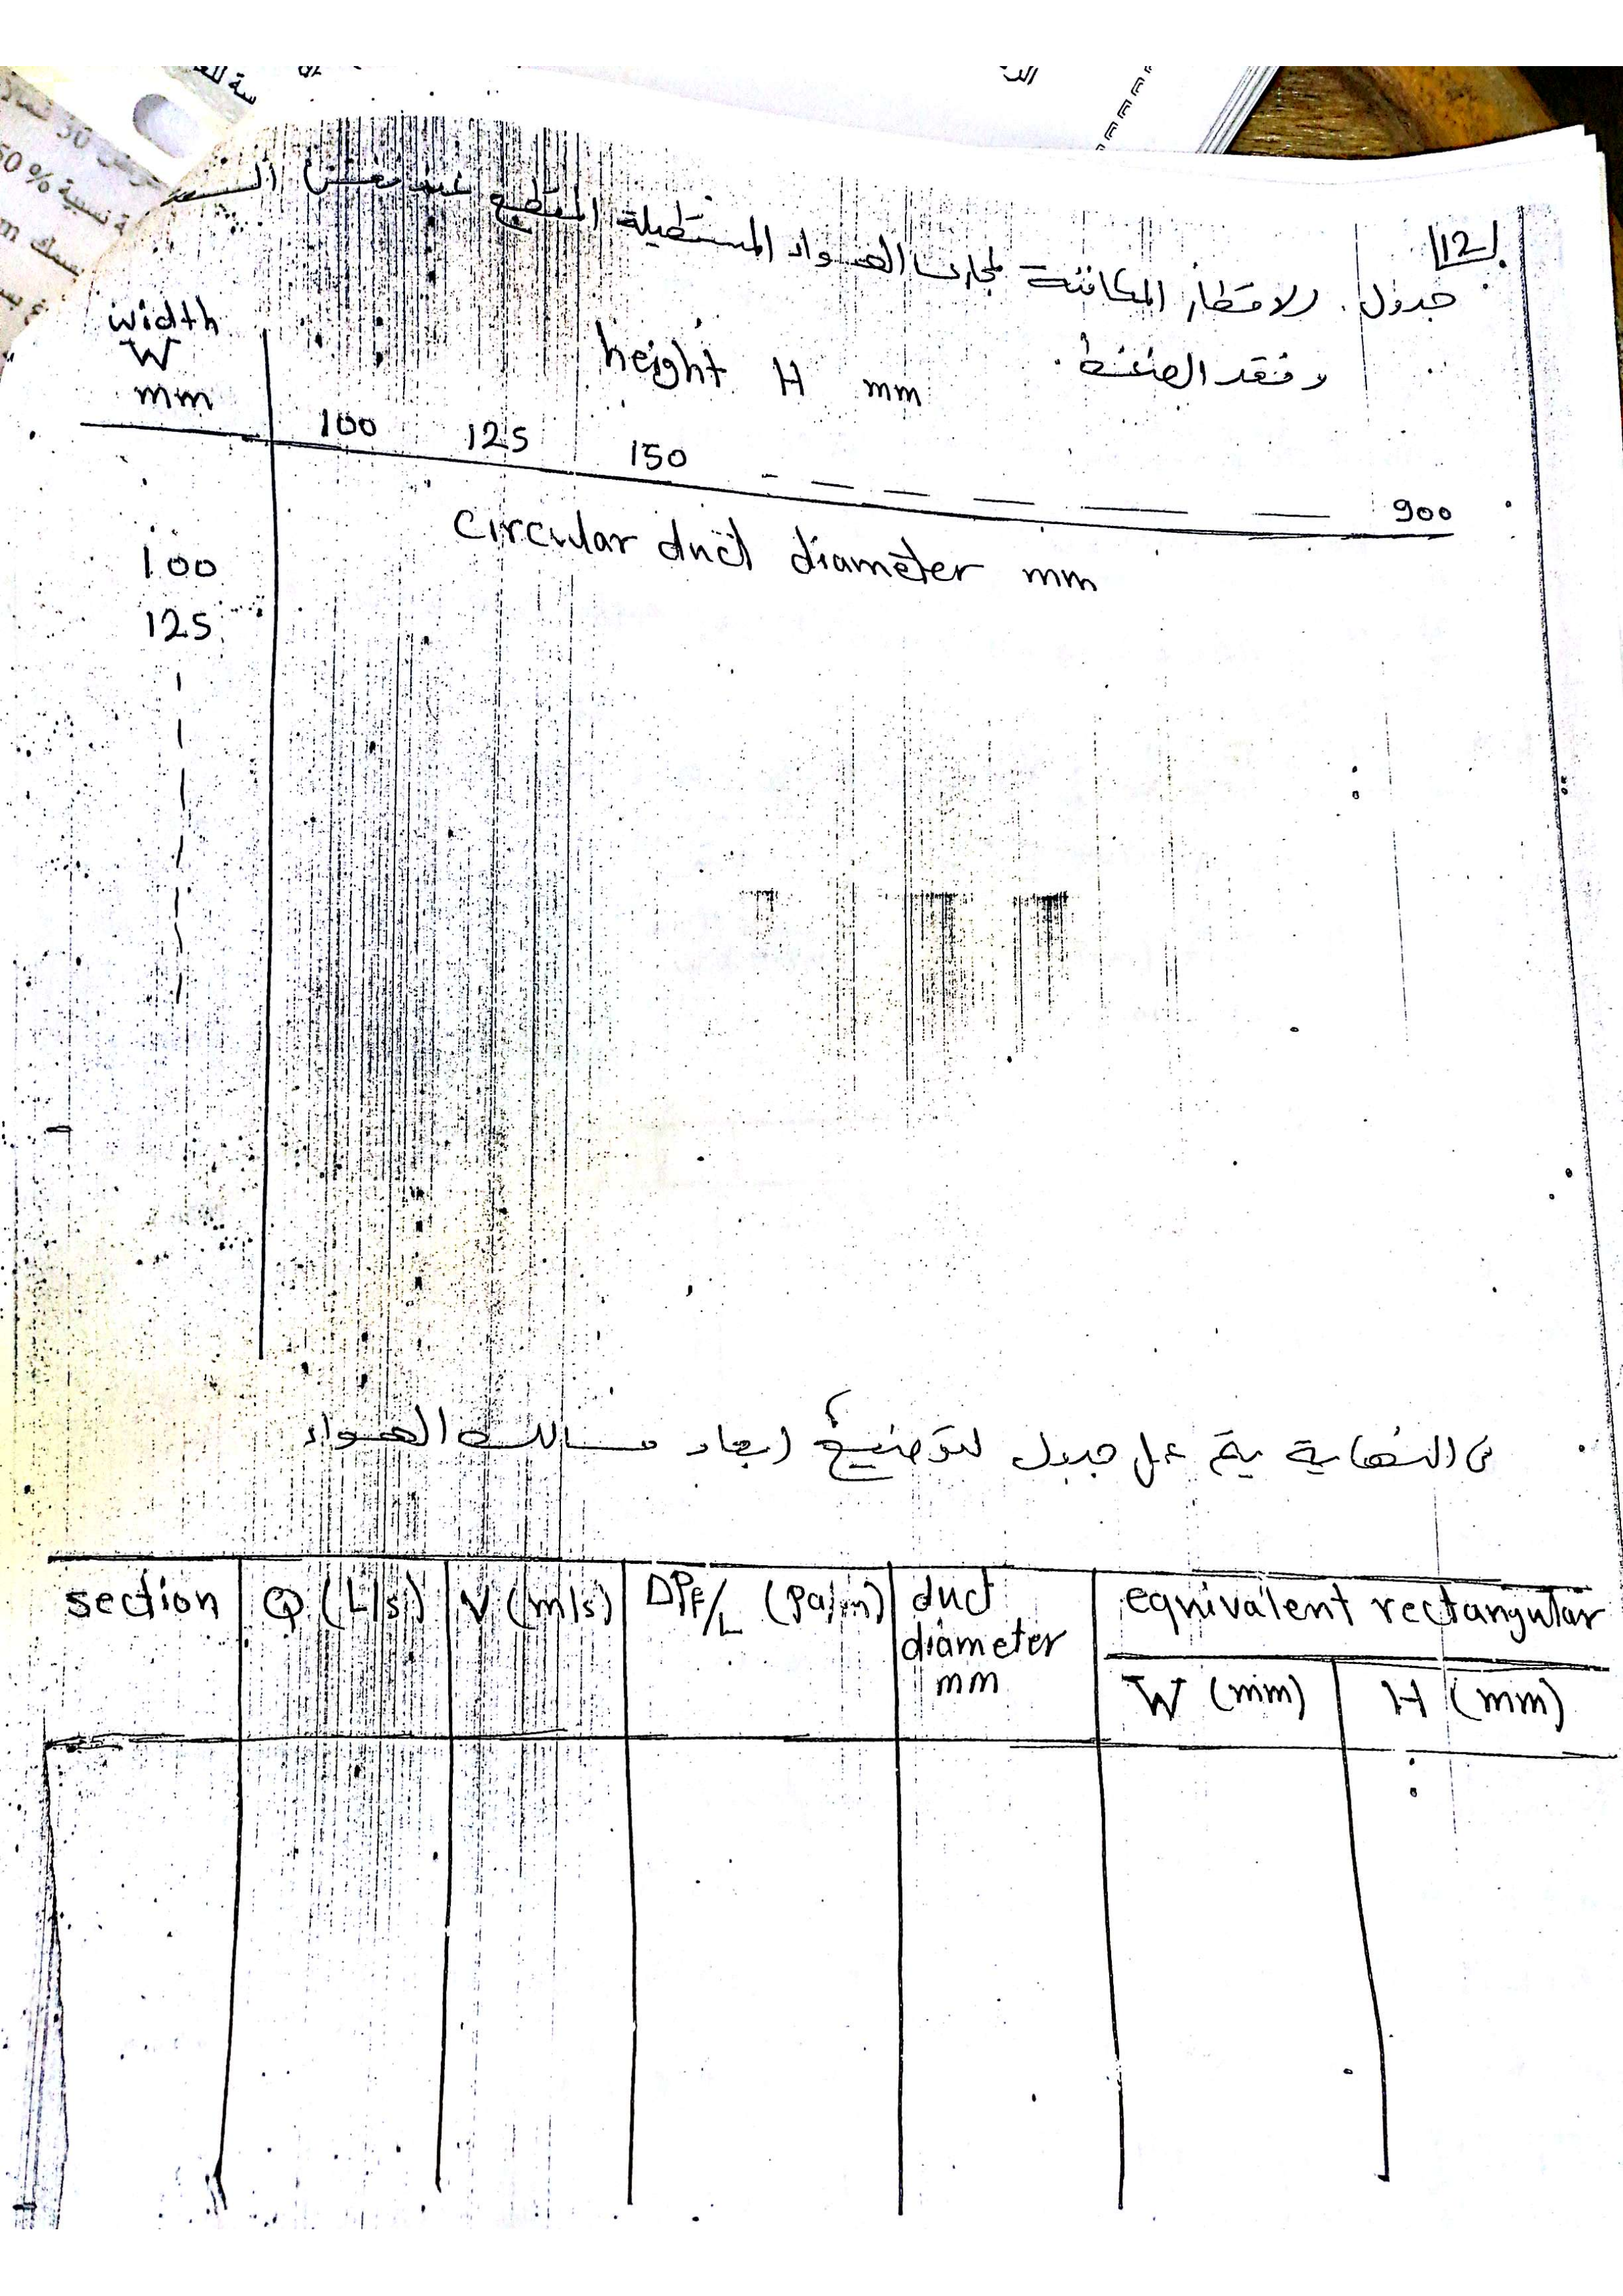 12
جدول الاقطار المكافئة لمجارى الهواء المستطيلة المقطع عند نفس
وفقد الضغط
width
W
mm
height H mm
100 125 150 900
circular duct diameter mm
100
125
فى النهاية يتم عمل جدول لتوضيح ابعاد مسالك الهواء
section Q (L/s) V (m/s) ΔPF/L (Pa/m) duct diameter mm equivalent rectangular
W (mm) H (mm)